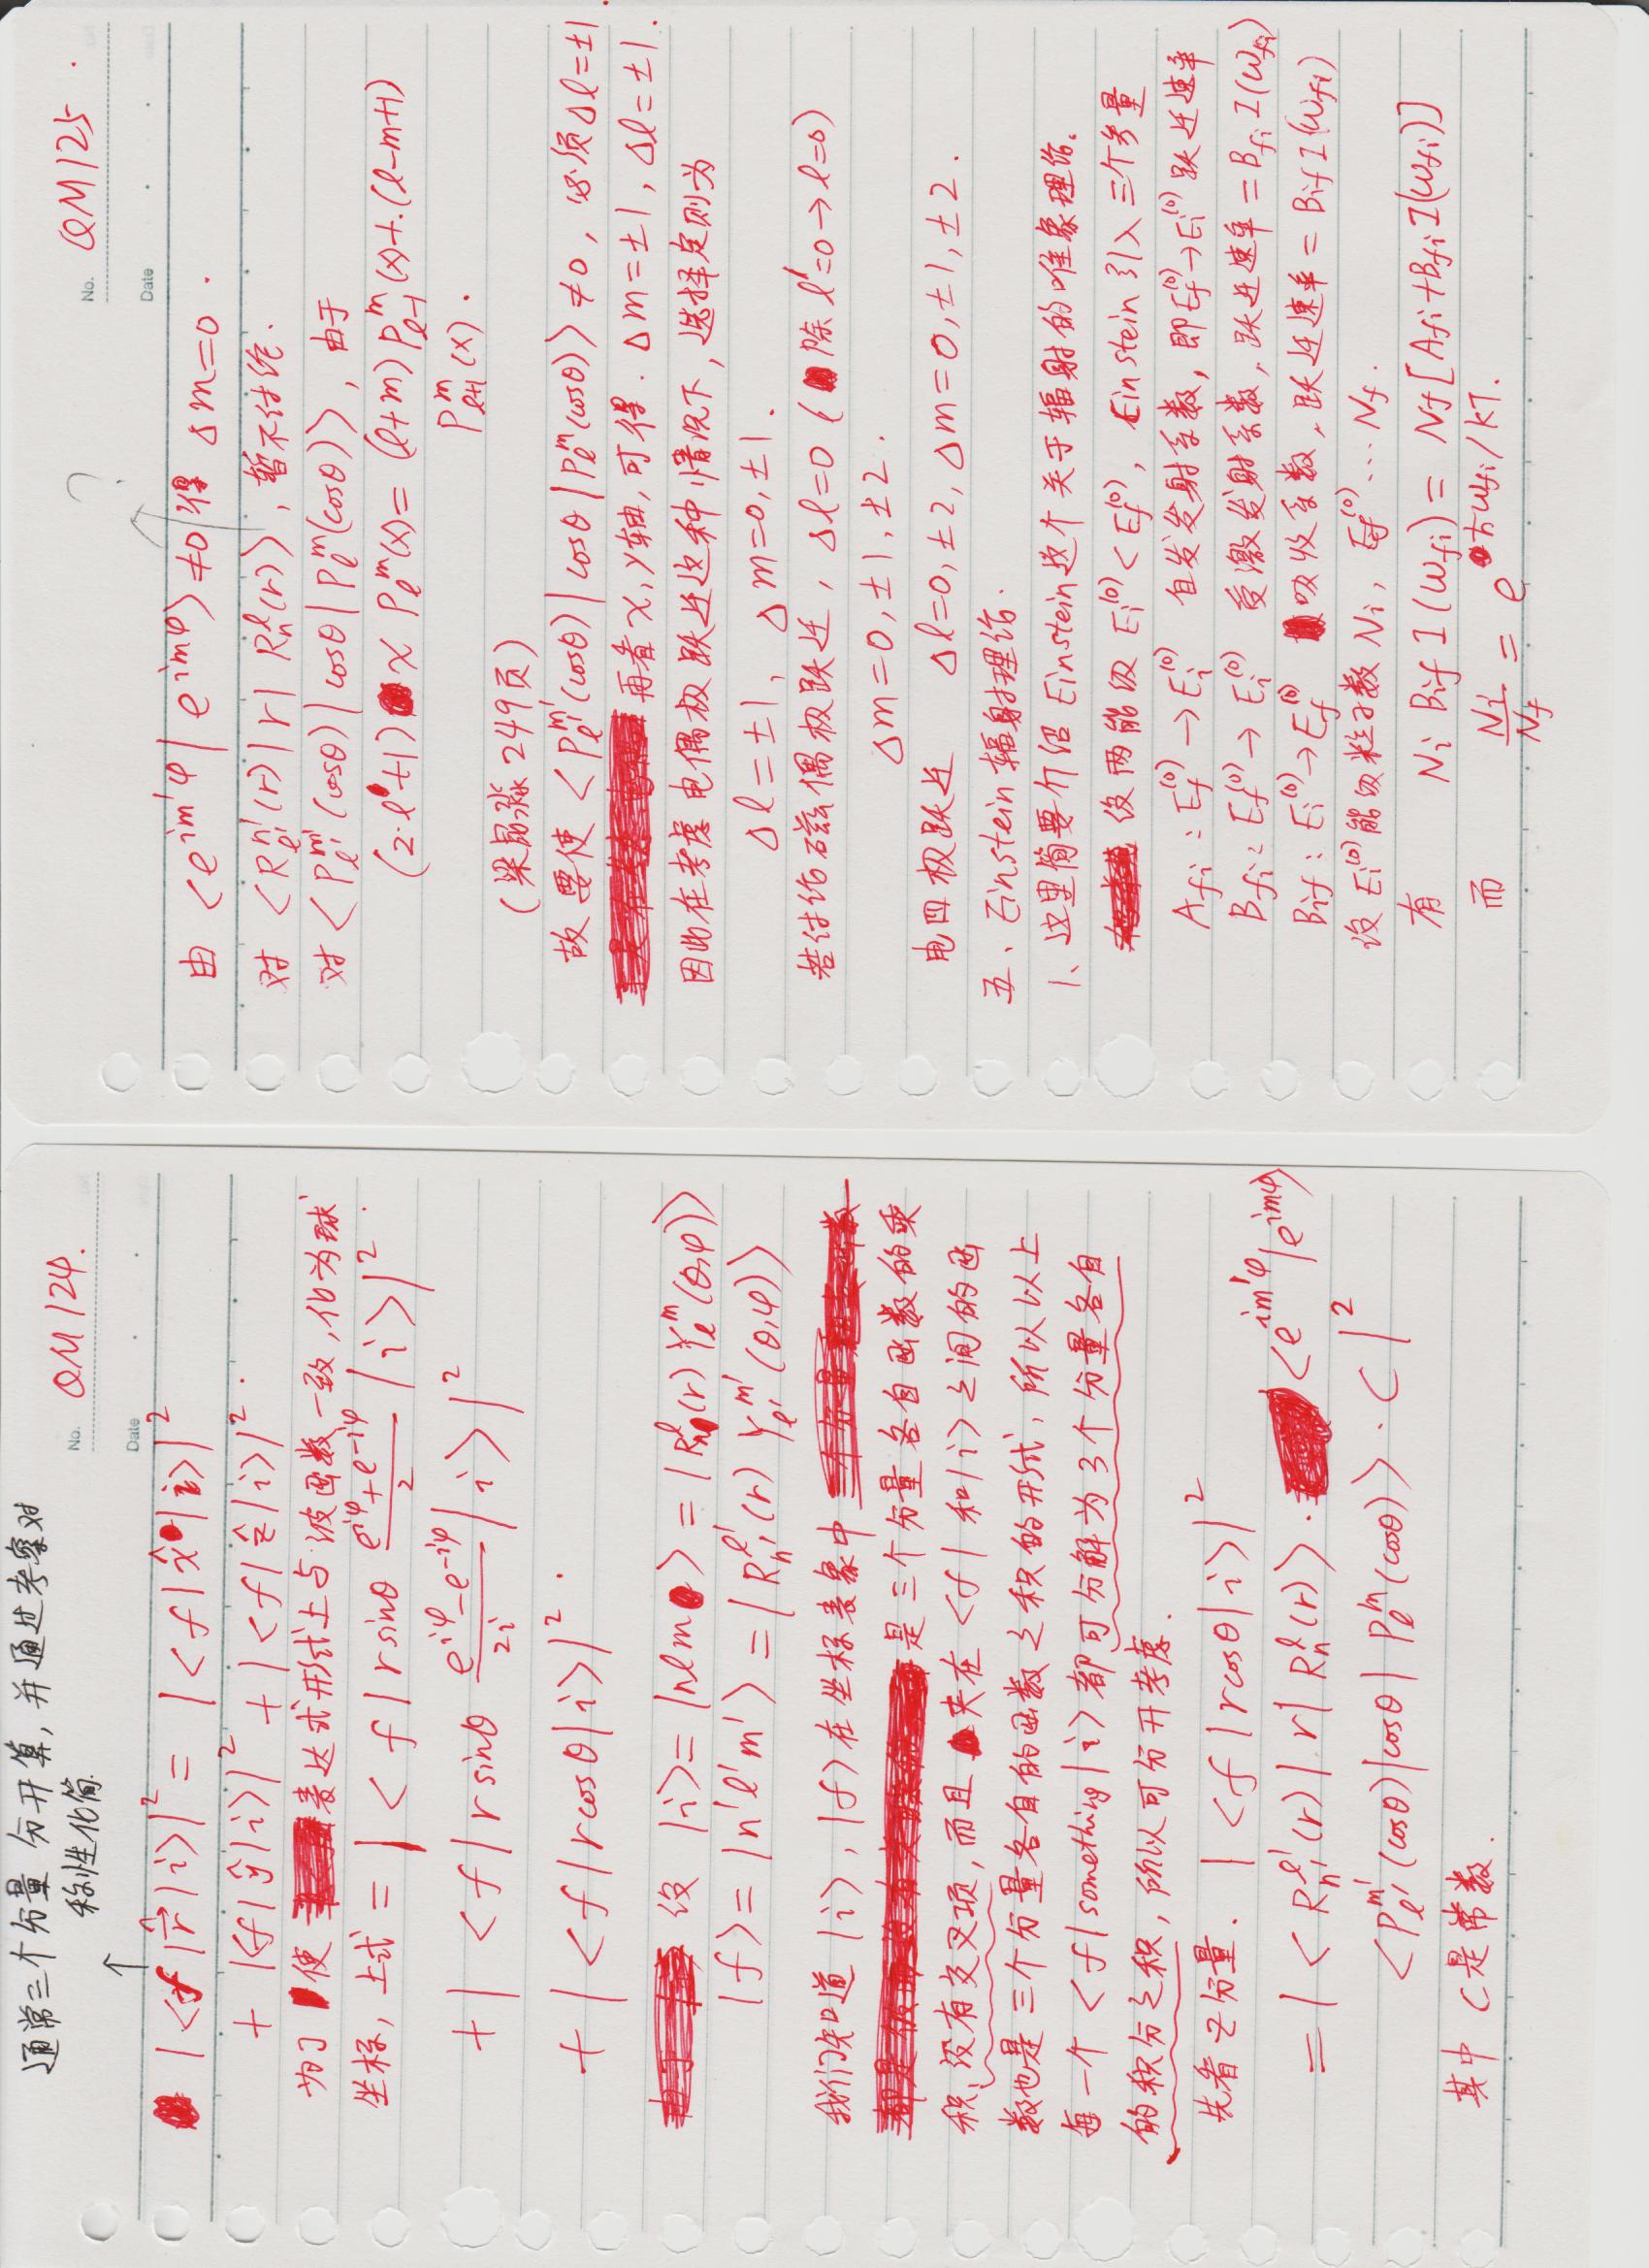 通常三个分量 分开算, 并通过考察对
称性化简.
↑
No. QM 124.
Date
|<f|r̂⃗|i>|² = |<f|x̂|i>|²
+ |<f|ŷ|i>|² + |<f|ẑ|i>|².
为了使表达式形式上与波函数一致, 化为球
坐标, 上式 = |<f|r sinθ (e^{iφ}+e^{-iφ})/2 |i>|²
+ |<f|r sinθ (e^{iφ}-e^{-iφ})/2i |i>|²
+ |<f|r cosθ|i>|².
设 |i> = |nlm> = |R_n^l(r) Y_l^m(θ,φ)>
|f> = |n'l'm'> = |R_{n'}^{l'}(r) Y_{l'}^{m'}(θ,φ)>
我们知道 |i>, |f> 在坐标表象中
是三个分量各自函数的乘
积, 没有交叉项, 而且夹在 <f| 和 |i> 之间的函
数也是三个分量各自的函数之积的形式, 所以以上
每一个 <f|something|i> 都可分解为3个分量各自
的积分之积, 所以可分开考虑.
先看z分量. |<f|r cosθ|i>|²
= |<R_{n'}^{l'}(r)|r|R_n^l(r)>·<e^{im'φ}|e^{imφ}>
<P_{l'}^{m'}(cosθ)|cosθ|P_l^m(cosθ)>·C|²
其中 C是常数.
?
No. QM125
Date
由 <e^{im'φ}|e^{imφ}> ≠0 得 Δm=0.
对 <R_{l'}^{n'}(r)|r|R_n^l(r)>, 暂不讨论.
对 <P_{l'}^{m'}(cosθ)|cosθ|P_l^m(cosθ)>, 由于
(2·l+1) x P_l^m(x) = (l+m) P_{l-1}^m(x)+(l-m+1)
P_{l+1}^m(x).
(梁昆淼 249页)
故要使 <P_{l'}^{m'}(cosθ)|cosθ|P_l^m(cosθ)> ≠0, 必须Δl=±1.
再看x, y轴, 可得. Δm=±1, Δl=±1.
因此在考虑电偶极跃迁这种情况下, 选择定则为
Δl=±1, Δm=0,±1.
若讨论磁偶极跃迁, Δl=0 (除 l'=0→l=0)
Δm=0,±1,±2.
电四极跃迁 Δl=0,±2, Δm=0,±1,±2.
五、Einstein辐射理论.
1、这里简要介绍Einstein这个关于辐射的唯象理论.
设两能级 E_i^{(0)}<E_f^{(0)}, Einstein引入三个参量
A_{fi}: E_f^{(0)}→E_i^{(0)} 自发发射系数, 即E_f^{(0)}→E_i^{(0)}跃迁速率
B_{fi}: E_f^{(0)}→E_i^{(0)} 受激发射系数, 跃迁速率=B_{fi}I(ω_{fi})
B_{if}: E_i^{(0)}→E_f^{(0)} 吸收系数, 跃迁速率=B_{if}I(ω_{fi})
设E_i^{(0)}能级粒子数N_i, E_f^{(0)}…N_f.
有 N_i B_{if} I(ω_{fi}) = N_f[A_{fi}+B_{fi}I(ω_{fi})]
而 N_i/N_f = e^{ħω_{fi}/kT}.